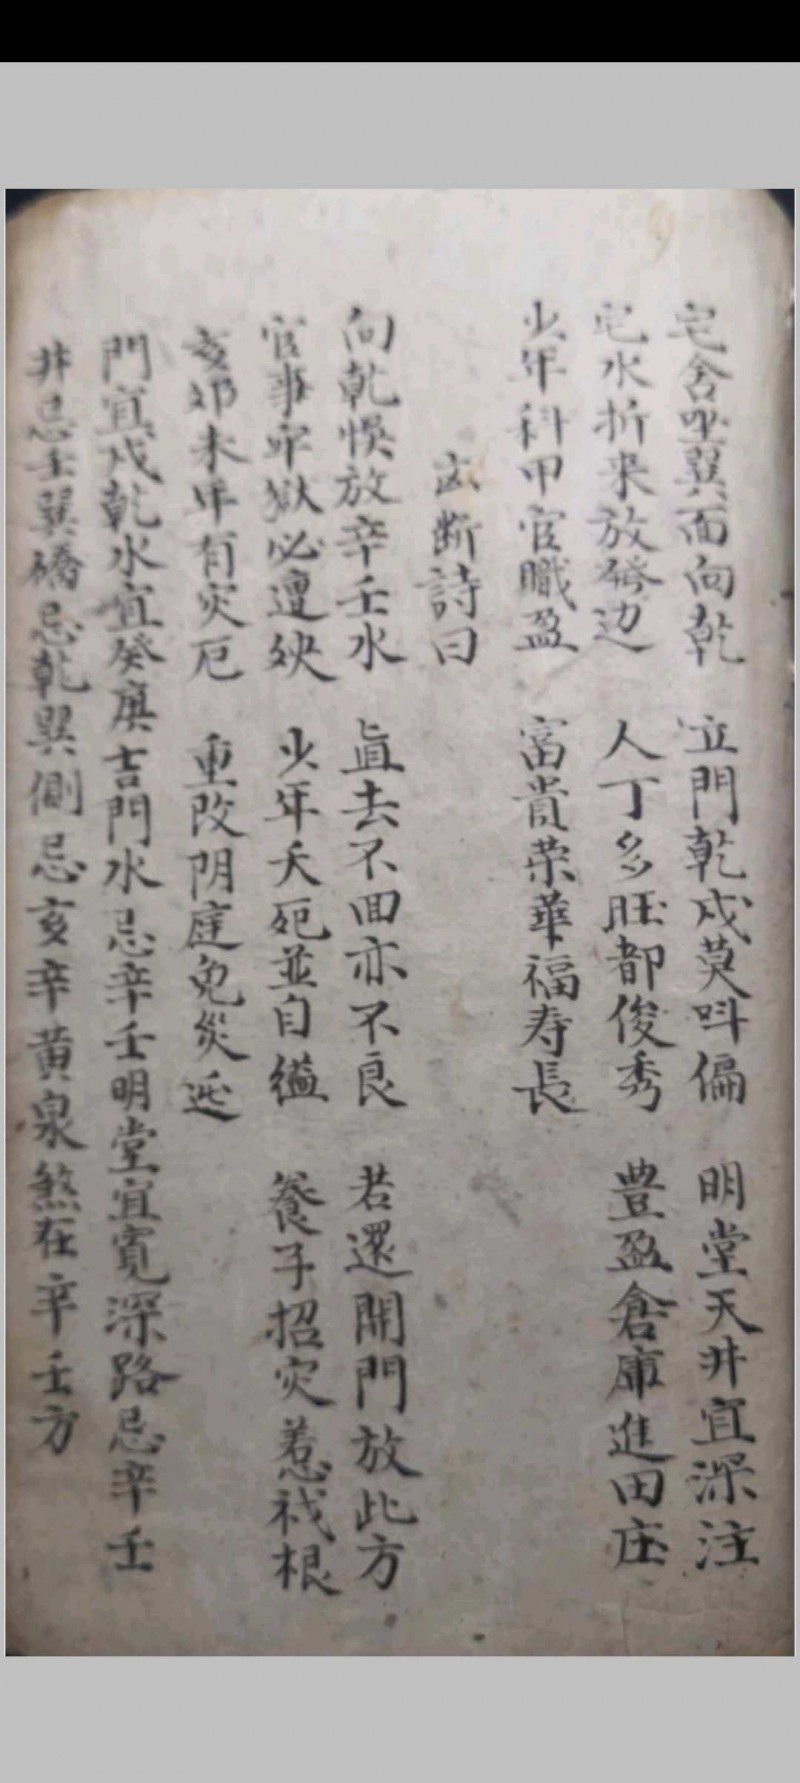 宅舍坐巽面向乾 立門乾戍莫呌偏 明堂天井宜深注
宅水折来放癸边 人丁多旺都俊秀 豊盈倉庫進田庄
少年科甲官職盈 富貴荣華福寿長
凶断詩曰
向乾悞放辛壬水 直去不回亦不良 若還開門放此方
官事牢獄必遭殃 少年夭死並自縊 養子招灾惹祸根
亥卯未年有灾厄 重改阴庭免災逃
門宜戍乾水宜癸庚吉門水忌辛壬明堂宜寛深路忌辛壬
井忌壬巽礄忌乾巽側忌亥辛黄泉煞在辛壬方